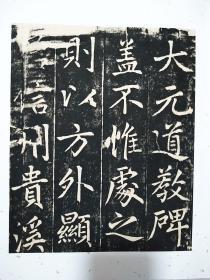 大元道教碑
蓋不惟處之
則以方外顯
信州貴溪